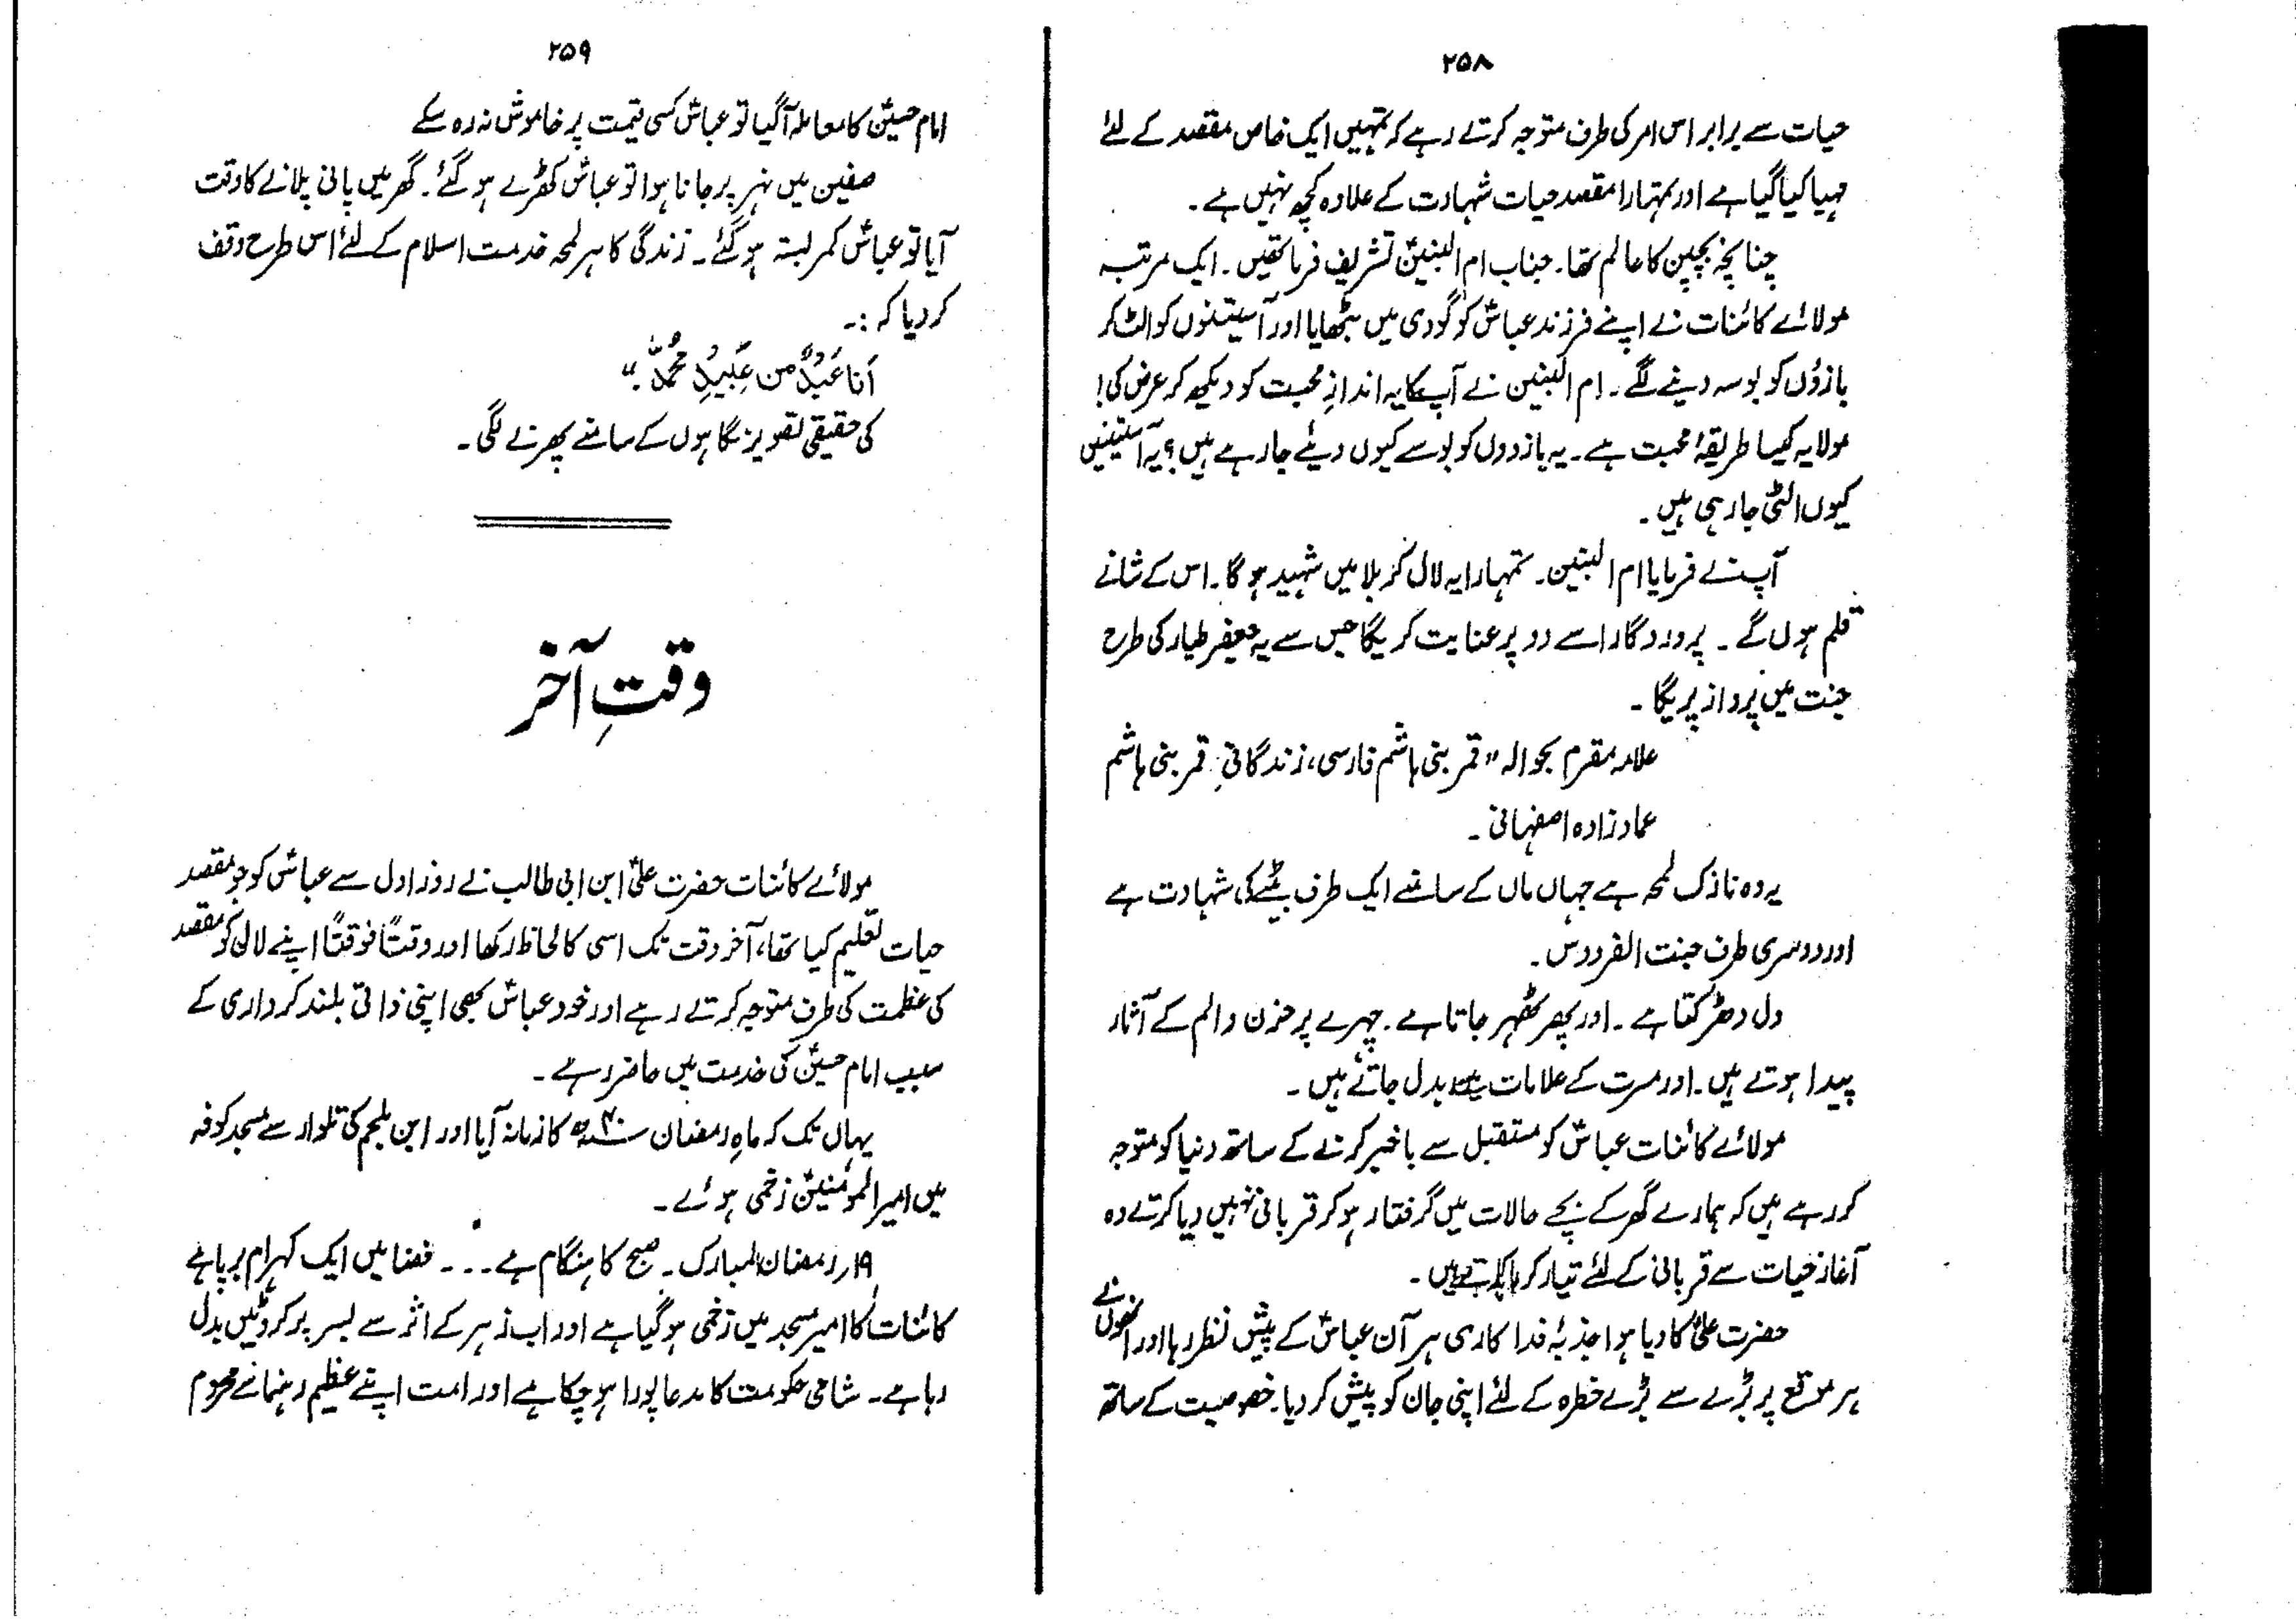 ۲۵۸
حیات سے برابر اس امر کی طرف متوجہ کرتے رہے کہ تمہیں ایک خاص مقصد کے لئے
مہیا کیا گیا ہے اور تمہارا مقصد حیات شہادت کے علاوہ کچھ نہیں ہے۔
چنانچہ بچپن کا عالم تھا۔ جناب ام البنینؑ تشریف فرما تھیں۔ ایک مرتبہ
مولائے کائنات نے اپنے فرزند عباسؑ کو گودی میں بٹھایا اور آستینوں کو الٹ کر
بازوؤں کو بوسہ دینے لگے۔ ام البنین نے آپ کا یہ اندازِ محبت کو دیکھ کر عرض کی!
مولا یہ کیسا طریقۂ محبت ہے۔ یہ بازووں کو بوسے کیوں دیئے جا رہے ہیں؟ یہ آستینیں
کیوں الٹی جا رہی ہیں۔
آپ نے فرمایا ام البنین۔ تمہارا یہ لال کربلا میں شہید ہوگا۔ اس کے شانے
قلم ہوں گے۔ پروردگار اسے دو پر عنایت کریگا جس سے یہ جعفر طیار کی طرح
جنت میں پرواز پریگا۔
علامہ مقرم بحوالہ "قمر بنی ہاشم فارسی، زندگانیِ قمر بنی ہاشم
عماد زادہ اصفہانی۔
یہ وہ نازک لمحہ ہے جہاں ماں کے سامنے ایک طرف بیٹے کی شہادت ہے
اور دوسری طرف جنت الفردوس۔
دل دھڑکتا ہے۔ اور پھر ٹھہر جاتا ہے۔ چہرے پر حزن و الم کے آثار
پیدا ہوتے ہیں۔ اور مسرت کے علامات میں بدل جاتے ہیں۔
مولائے کائنات عباسؑ کو مستقبل سے باخبر کرنے کے ساتھ دنیا کو متوجہ
کر رہے ہیں کہ ہمارے گھر کے بچے حالات میں گرفتار ہو کر قربانی نہیں دیا کرتے وہ
آغاز حیات سے قربانی کے لئے تیار کر ہیں۔
حضرت علیؑ کا دیا ہوا جذبۂ فدا کاری ہر آن عباسؑ کے پیش نظر رہا اور انھوں نے
ہر موقع پر بڑے سے بڑے خطرہ کے لئے اپنی جان کو پیش کر دیا۔ خصوصیت کے ساتھ
۲۵۹
امام حسینؑ کا معاملہ آگیا تو عباسؑ کسی قیمت پر خاموش نہ رہ سکے
صفین میں نہر پر جانا ہوا تو عباسؑ کھڑے ہو گئے۔ گھر میں پانی پلانے کا وقت
آیا تو عباسؑ کمر بستہ ہو گئے۔ زندگی کا ہر لمحہ خدمت اسلام کے لئے اس طرح وقف
کر دیا کہ :۔
اَنا عَبدٌ من عَبِیدِ محُمَّدٌ۔"
کی حقیقی تصویر نگاہوں کے سامنے پھرنے لگی۔
وقتِ آخر
مولائے کائنات حضرت علیؑ ابن ابی طالب نے روز اول سے عباسؑ کو جو مقصد
حیات تعلیم کیا تھا، آخر وقت تک اسی کا لحاظ رکھا اور وقتاً فوقتاً اپنے لال کو مقصد
کی عظمت کی طرف متوجہ کرتے رہے اور خود عباسؑ بھی اپنی ذاتی بلند کرداری کے
سبب امام حسینؑ کی خدمت میں حاضر رہے۔
یہاں تک کہ ماہِ رمضان ۴۰ھ کا زمانہ آیا اور ابن ملجم کی تلوار سے مسجد کوفہ
میں امیر المؤمنینؑ زخمی ہوئے۔
۱۹ رمضان المبارک۔ صبح کا ہنگام ہے۔۔۔ فضا میں ایک کہرام برپا ہے
کائنات کا امیر مسجد میں زخمی ہو گیا ہے اور اب زہر کے اثر سے بستر پر کروٹیں بدل
رہا ہے۔ شامی حکومت کا مدعا پورا ہو چکا ہے اور امت اپنے عظیم رہنما نے محروم